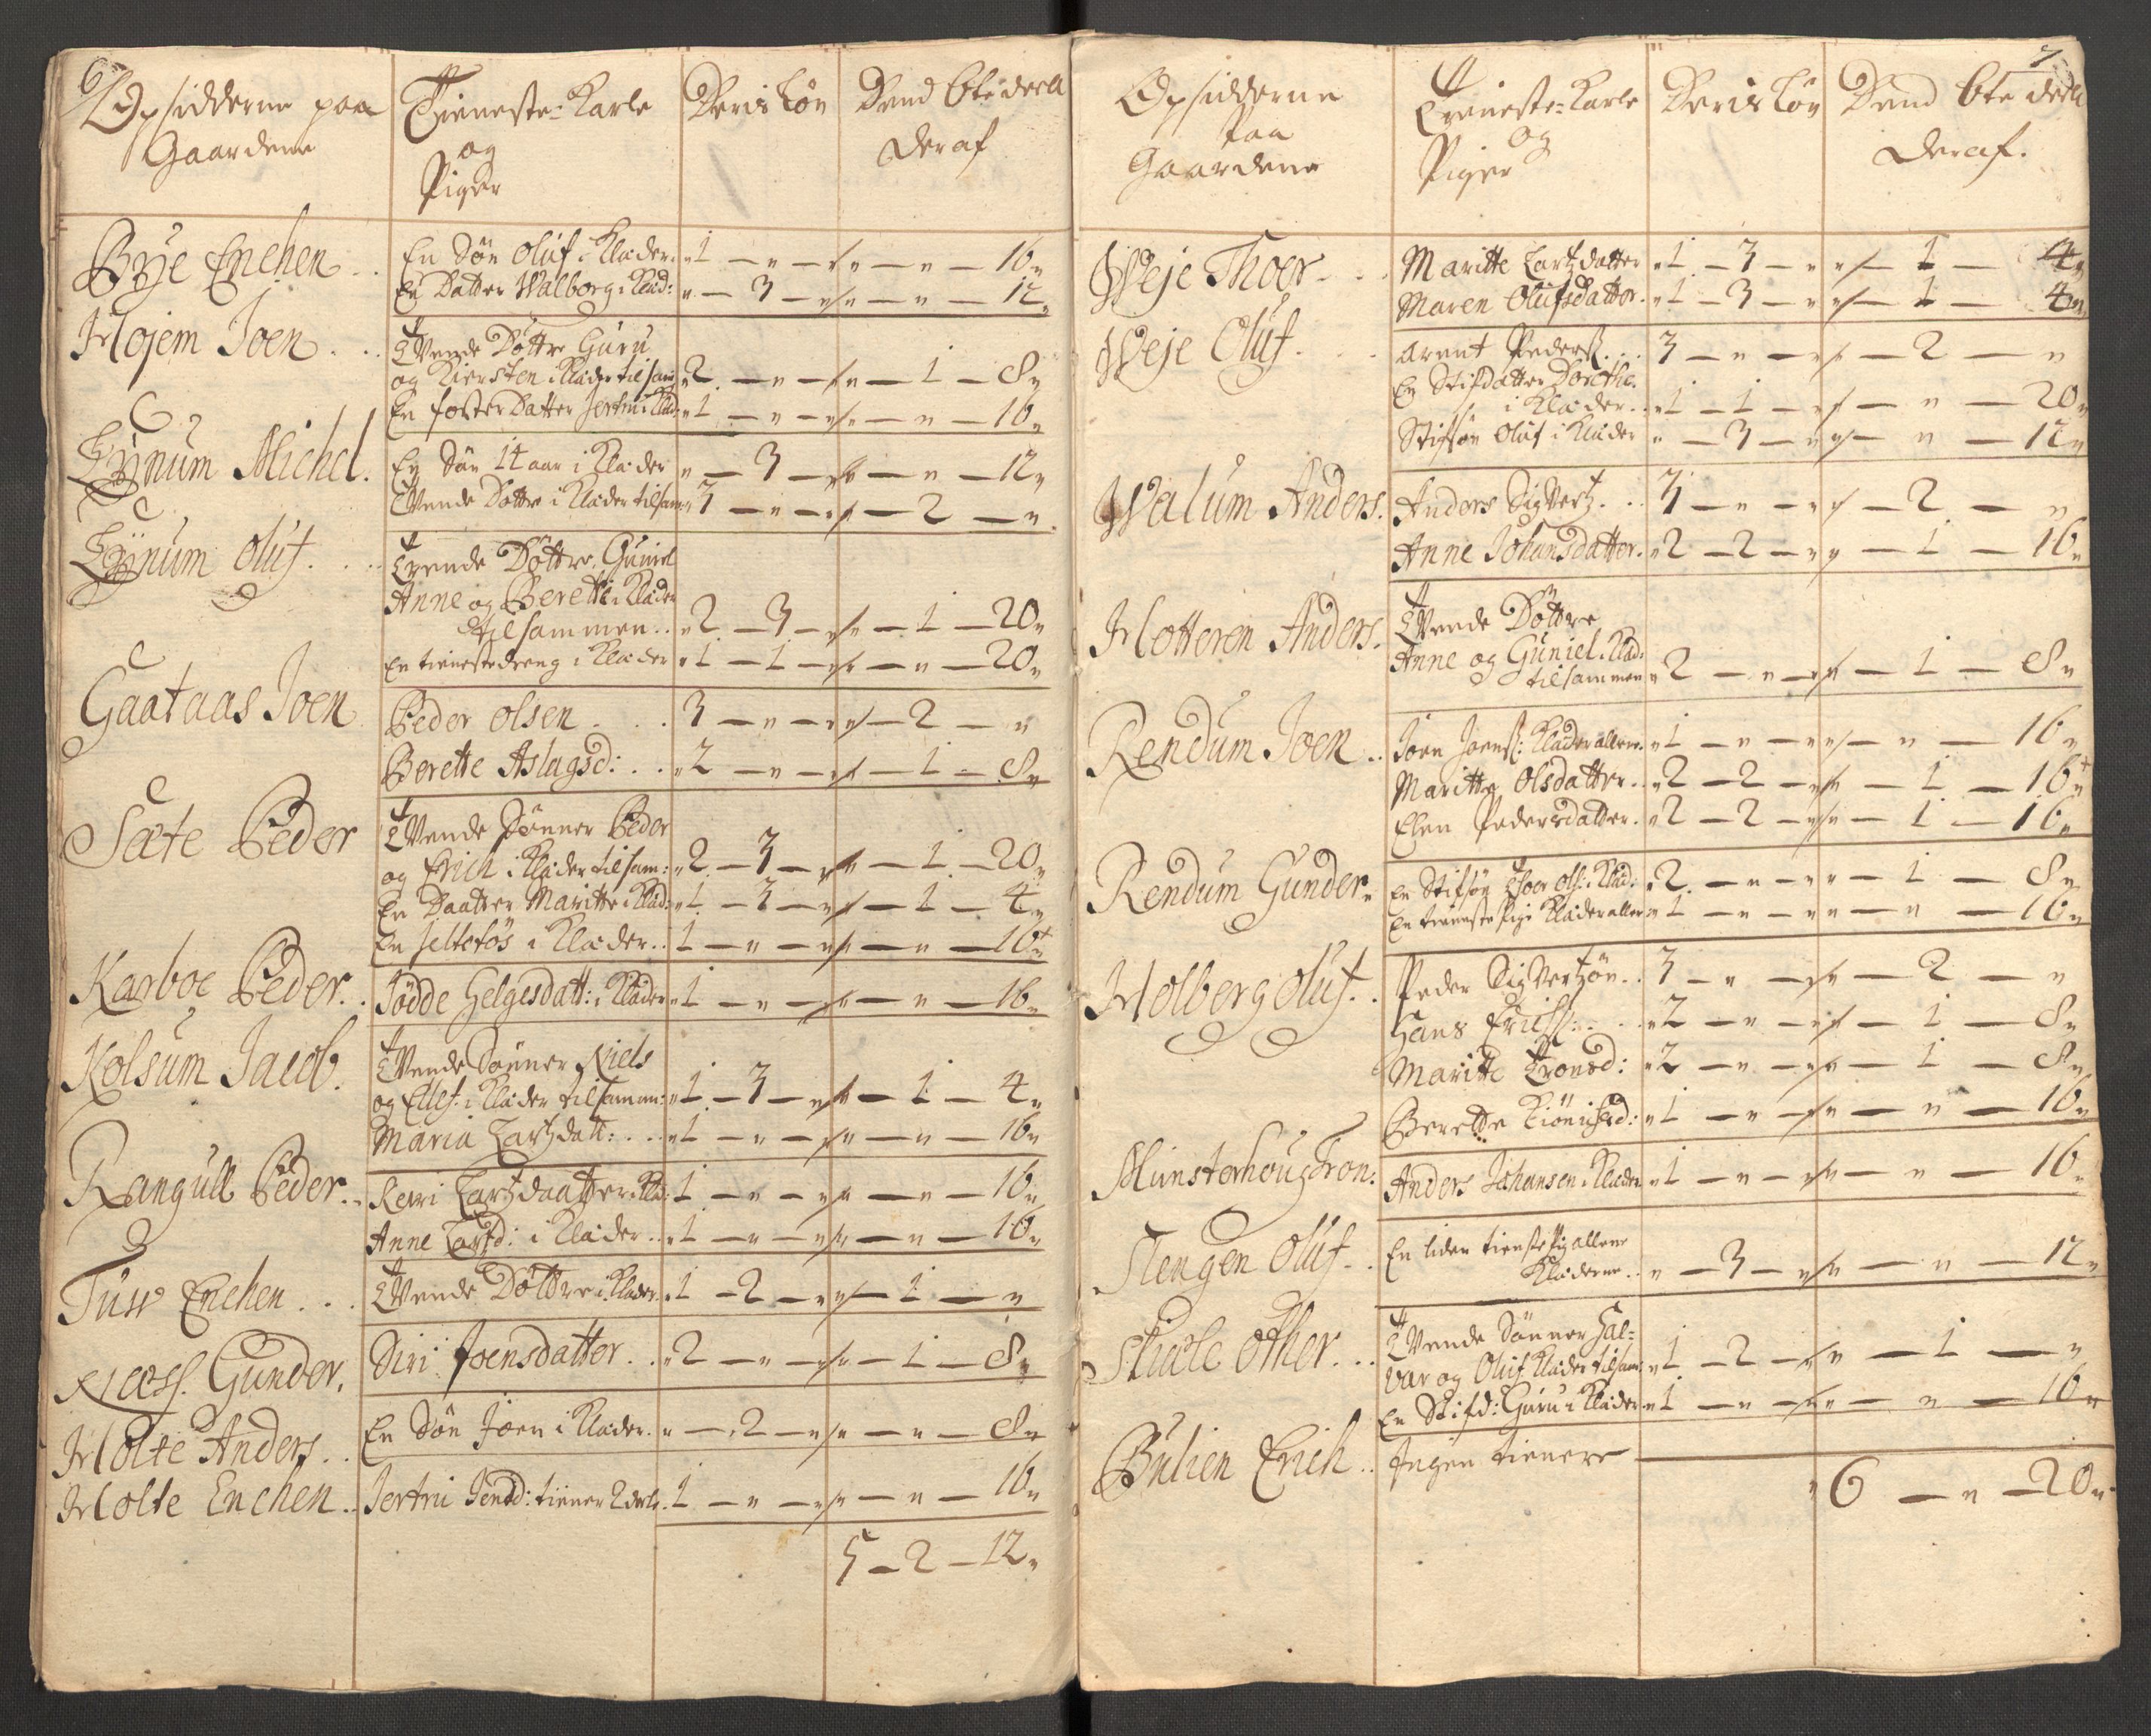 6
Opsidderne paa Gaardene | Tieneste-Karle og Piger | Deris Løn | Dend 6te deell deraf
Bye Enchen . . | En Søn Oluf i Klæder. | „1 — „ — „ | „ — „ — 16„
En Datter Walborg i Klæd: | „ — 3 — „ | „ — „ — 12„
Mojem Joen . . . | Tvende Døttre Guru
og Kiersten i Klæder tilsam: | „2 — „ — „ | „ — 1 — 8„
En foster Datter Jertru i Klæd: | „1 — „ — „ | „ — „ — 16„
Lÿnum Michel. | En Søn 14 aar i Klæder | „ — 3 — „ | „ — „ — 12„
Tvende Døttre i Klæder tilsam: | 3 — „ — „ | — 2 — „
Lÿnum Oluf. . . . | Trende Døttre, Guniel
Anne og Berette i Klæder
tilsammen . . | „2 — 3 — „ | „ — 1 — 20„
En tienestedreng i Klæder | „1 — 1 — „ | „ — „ — 20„
Gaataas Joen | Peder Olsen . . . . | 3 — „ — „ | „ — 2 — „
Berette Aslagsd: . . | „2 — „ — „ | „ — 1 — 8„
Sæte Peder | Tvende Sønner Peder
og Erich i Klæder tilsam: | „2 — 3 — „ | „ — 1 — 20„
En Daatter Maritte i Klæd: | „1 — 3 — „ | — 1 — 4„
En i Klæder. . | 1 — „ — „ | „ — „ — 16„
Karboe Peder. . | Jødde Helgesdatt: i Klæder | „1 — „ — „ | „ — „ — 16„
Kolsum Jacob. | Tvende Sønner Niels
og Ellef: i Klæder tilsamm: | „1 — 3 — „ | „ — 1 — 4„
Maria Lartzdatt: . . . | „1 — „ — „ | „ — „ — 16„
Rangull Peder. . . | Kari Lartzdaatter i Klæ: | 1 — „ — „ | „ — „ — 16„
Anne Lartzd: i Klæder . . | „1 — „ — „ | „ — „ — 16„
Tuss Enchen . . . | Tvende Døttre i Klæder | „1 — 2 — „ | „ — 1 — „
Næss. Gunder. | Siri Joensdatter. . . | „2 — „ — „ | „ — 1 — 8„
Molte Anders . . | En Søn Joen i Klæder. | „ — 2 — „ | „ — „ — 8„
Molte Enchen . . | Jertru Jensd: tiener | 1 — „ — „ | „ — „ — 16„
5 — 2 — 12„
7
Opsidderne Paa Gaardene | Tieneste-Karle og Piger | Deris Løn | Dend 6te deell deraf.
Weje Thoer . . . | Maritte Lartzdatter | „1 — 3 — „ | „ — 1 — 4„
Maren Olufsdatter. | „1 — 3 — „ | „ — 1 — 4„
Weje Oluf. . . . | Arent Pederss. . . | 3 — „ — „ | — 2 — „
En Stifdatter Dorethe.
i Klæder. . | „1 — 1 — „ | — „ — 20„
Stifsøn Oluf i Klæder | „ — 3 — „ | „ — „ — 12„
Walum Anders. | Anders Sigvertz. . . | 3 — „ — „ | — 2 — „
Anne Johansdatter. | „2 — 2 — „ | „ — 1 — 16„
Motteren Anders. | Tvende Døttre
Anne og Guniel i Klæd:
tilsammen | „2 — „ — „ | „ — 1 — 8„
Rendum Joen . . | Joen Joenss: Klæder allene. | „1 — „ — „ | „ — „ — 16„
Maritte Olsdatter. . | „2 — 2 — „ | „ — 1 — 16„
Elen Pedersdatter. | „2 — 2 — „ | „ — 1 — 16„
Rendum Gunder. | En Stifsøn Thoer Ols: i Klæd: | „2 — „ — „ | „ — 1 — 8„
En tieneste Pige Klæder allene | „1 — „ — „ | „ — „ — 16„
Molberg Oluf. . | Peder Sigvertzøn. . | 3 — „ — „ | „ — 2 — „
Hans Erichss: . . . | „2 — „ — „ | „ — 1 — 8„
Maritte Tronsd: | „2 — „ — „ | „ — 1 — 8„
Berette | „1 — „ — „ | „ — „ — 16„
Munsterhoug Tron: | Anders Johansen i Klæder | „1 — „ — „ | „ — „ — 16„
Slengen Oluf . . | En liden tieneste Pig allene
Klæderne. . | „ — 3 — „ | „ — „ — 12„
Skiale Other. . . | Tvende Sønner Hal=
var og Oluf Klæder tilsam: | „1 — 2 — „ | „ — 1 — „
En Stifd: Guru i Klæder | „1 — „ — „ | „ — „ — 16„
Bulien Erich . . | Ingen tienere
„ 6 — „ — 20„